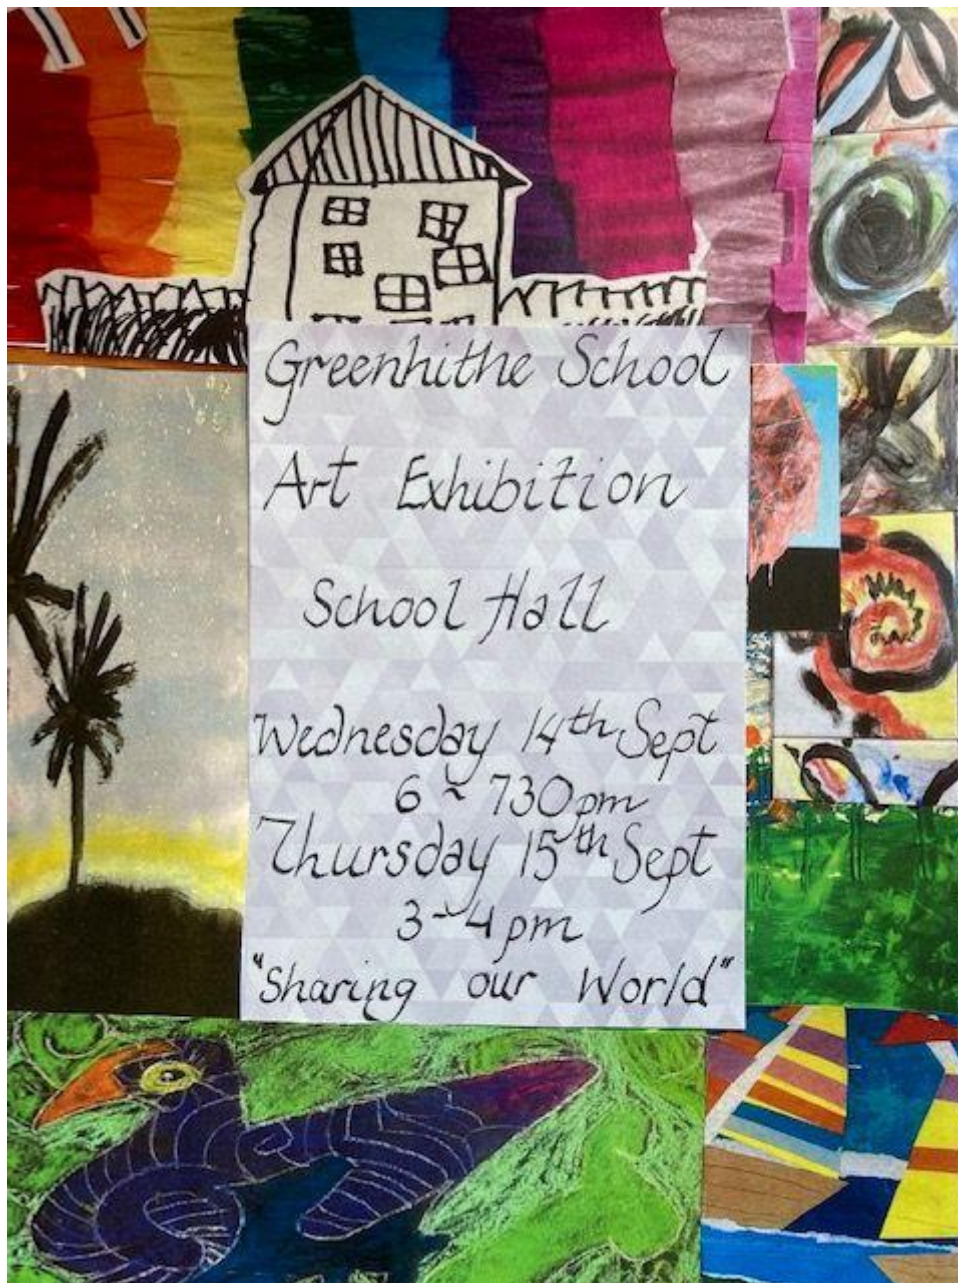 Greenhithe School
Art Exhibition
School Hall
Wednesday 14th Sept
6 ~ 730pm
Thursday 15th Sept
3~4pm
"Sharing our World"